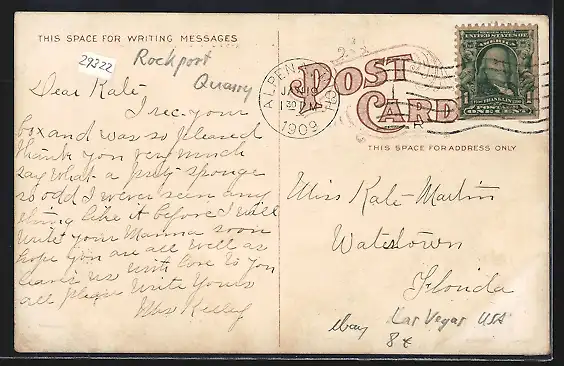 THIS SPACE FOR WRITING MESSAGES
29322
Rockport
Quarry
Dear Kate
I rec your
box and was so pleased
thank you very much
say what a pretty sponge
so odd I never seen any
thing like it before I will
write your Mamma soon
hope you are all well as
leaves us with love to you
all please write Yours
Mrs Kelley
ALPENA MICH
JAN 18
1909
POST
CARD
UNITED STATES OF
AMERICA
FRANKLIN
POSTAGE
ONE CENT
THIS SPACE FOR ADDRESS ONLY
Miss Kate Martin
Watertown
Florida
ebay Las Vegas USA
8€